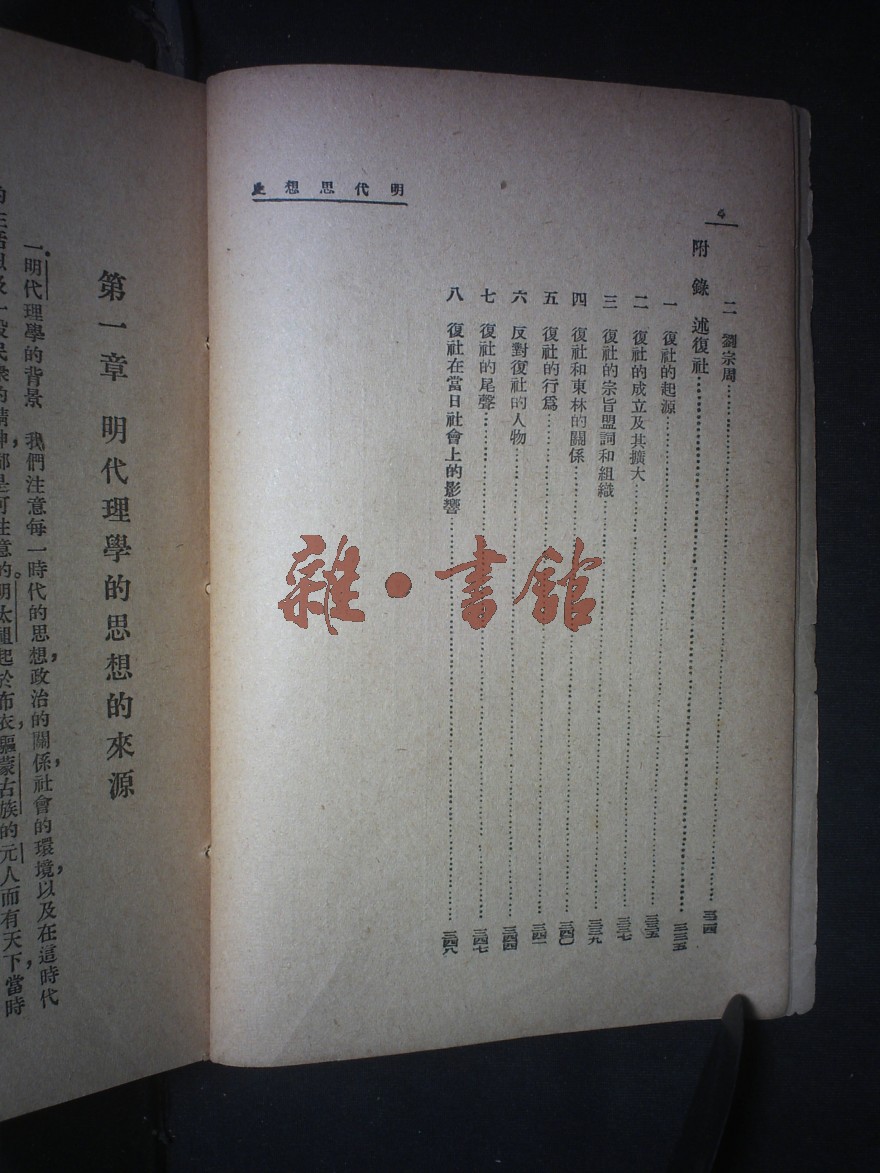 明代思想史
4
二　劉宗周……三二四
附錄　述復社……三三五
一　復社的起源……三三五
二　復社的成立及其擴大……三三七
三　復社的宗旨盟詞和組織……三三九
四　復社和東林的關係……三四〇
五　復社的行爲……三四一
六　反對復社的人物……三四四
七　復社的尾聲……三四七
八　復社在當日社會上的影響……三四八
雜·書館
第一章　明代理學的思想的來源
一明代理學的背景　我們注意每一時代的思想，政治的關係，社會的環境，以及在這時代
的生活以及一般民衆的精神，都是可注意的。明太祖起於布衣，驅蒙古族的元人而有天下，當時